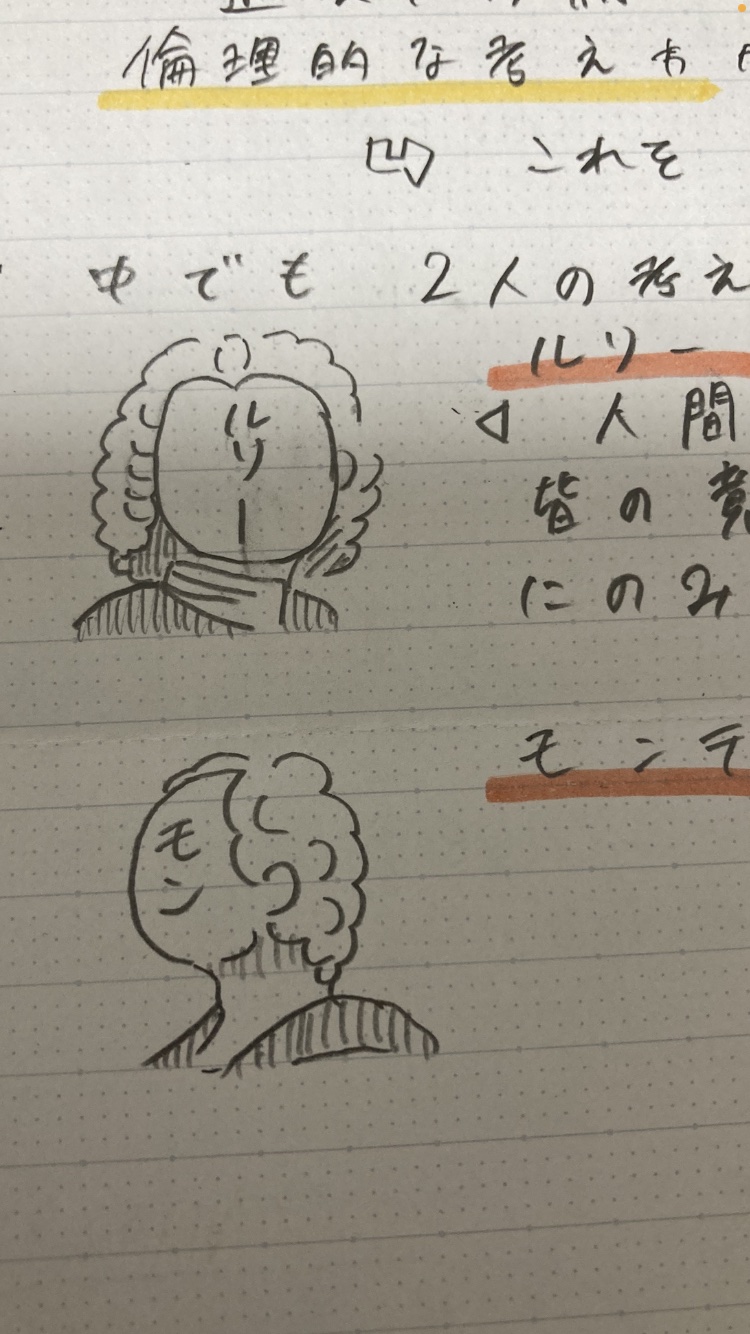 倫理的な考え
これを
中でも 2人の考え
ルソー
ルソー
人間
皆の意
にのみ
モンテ
モン